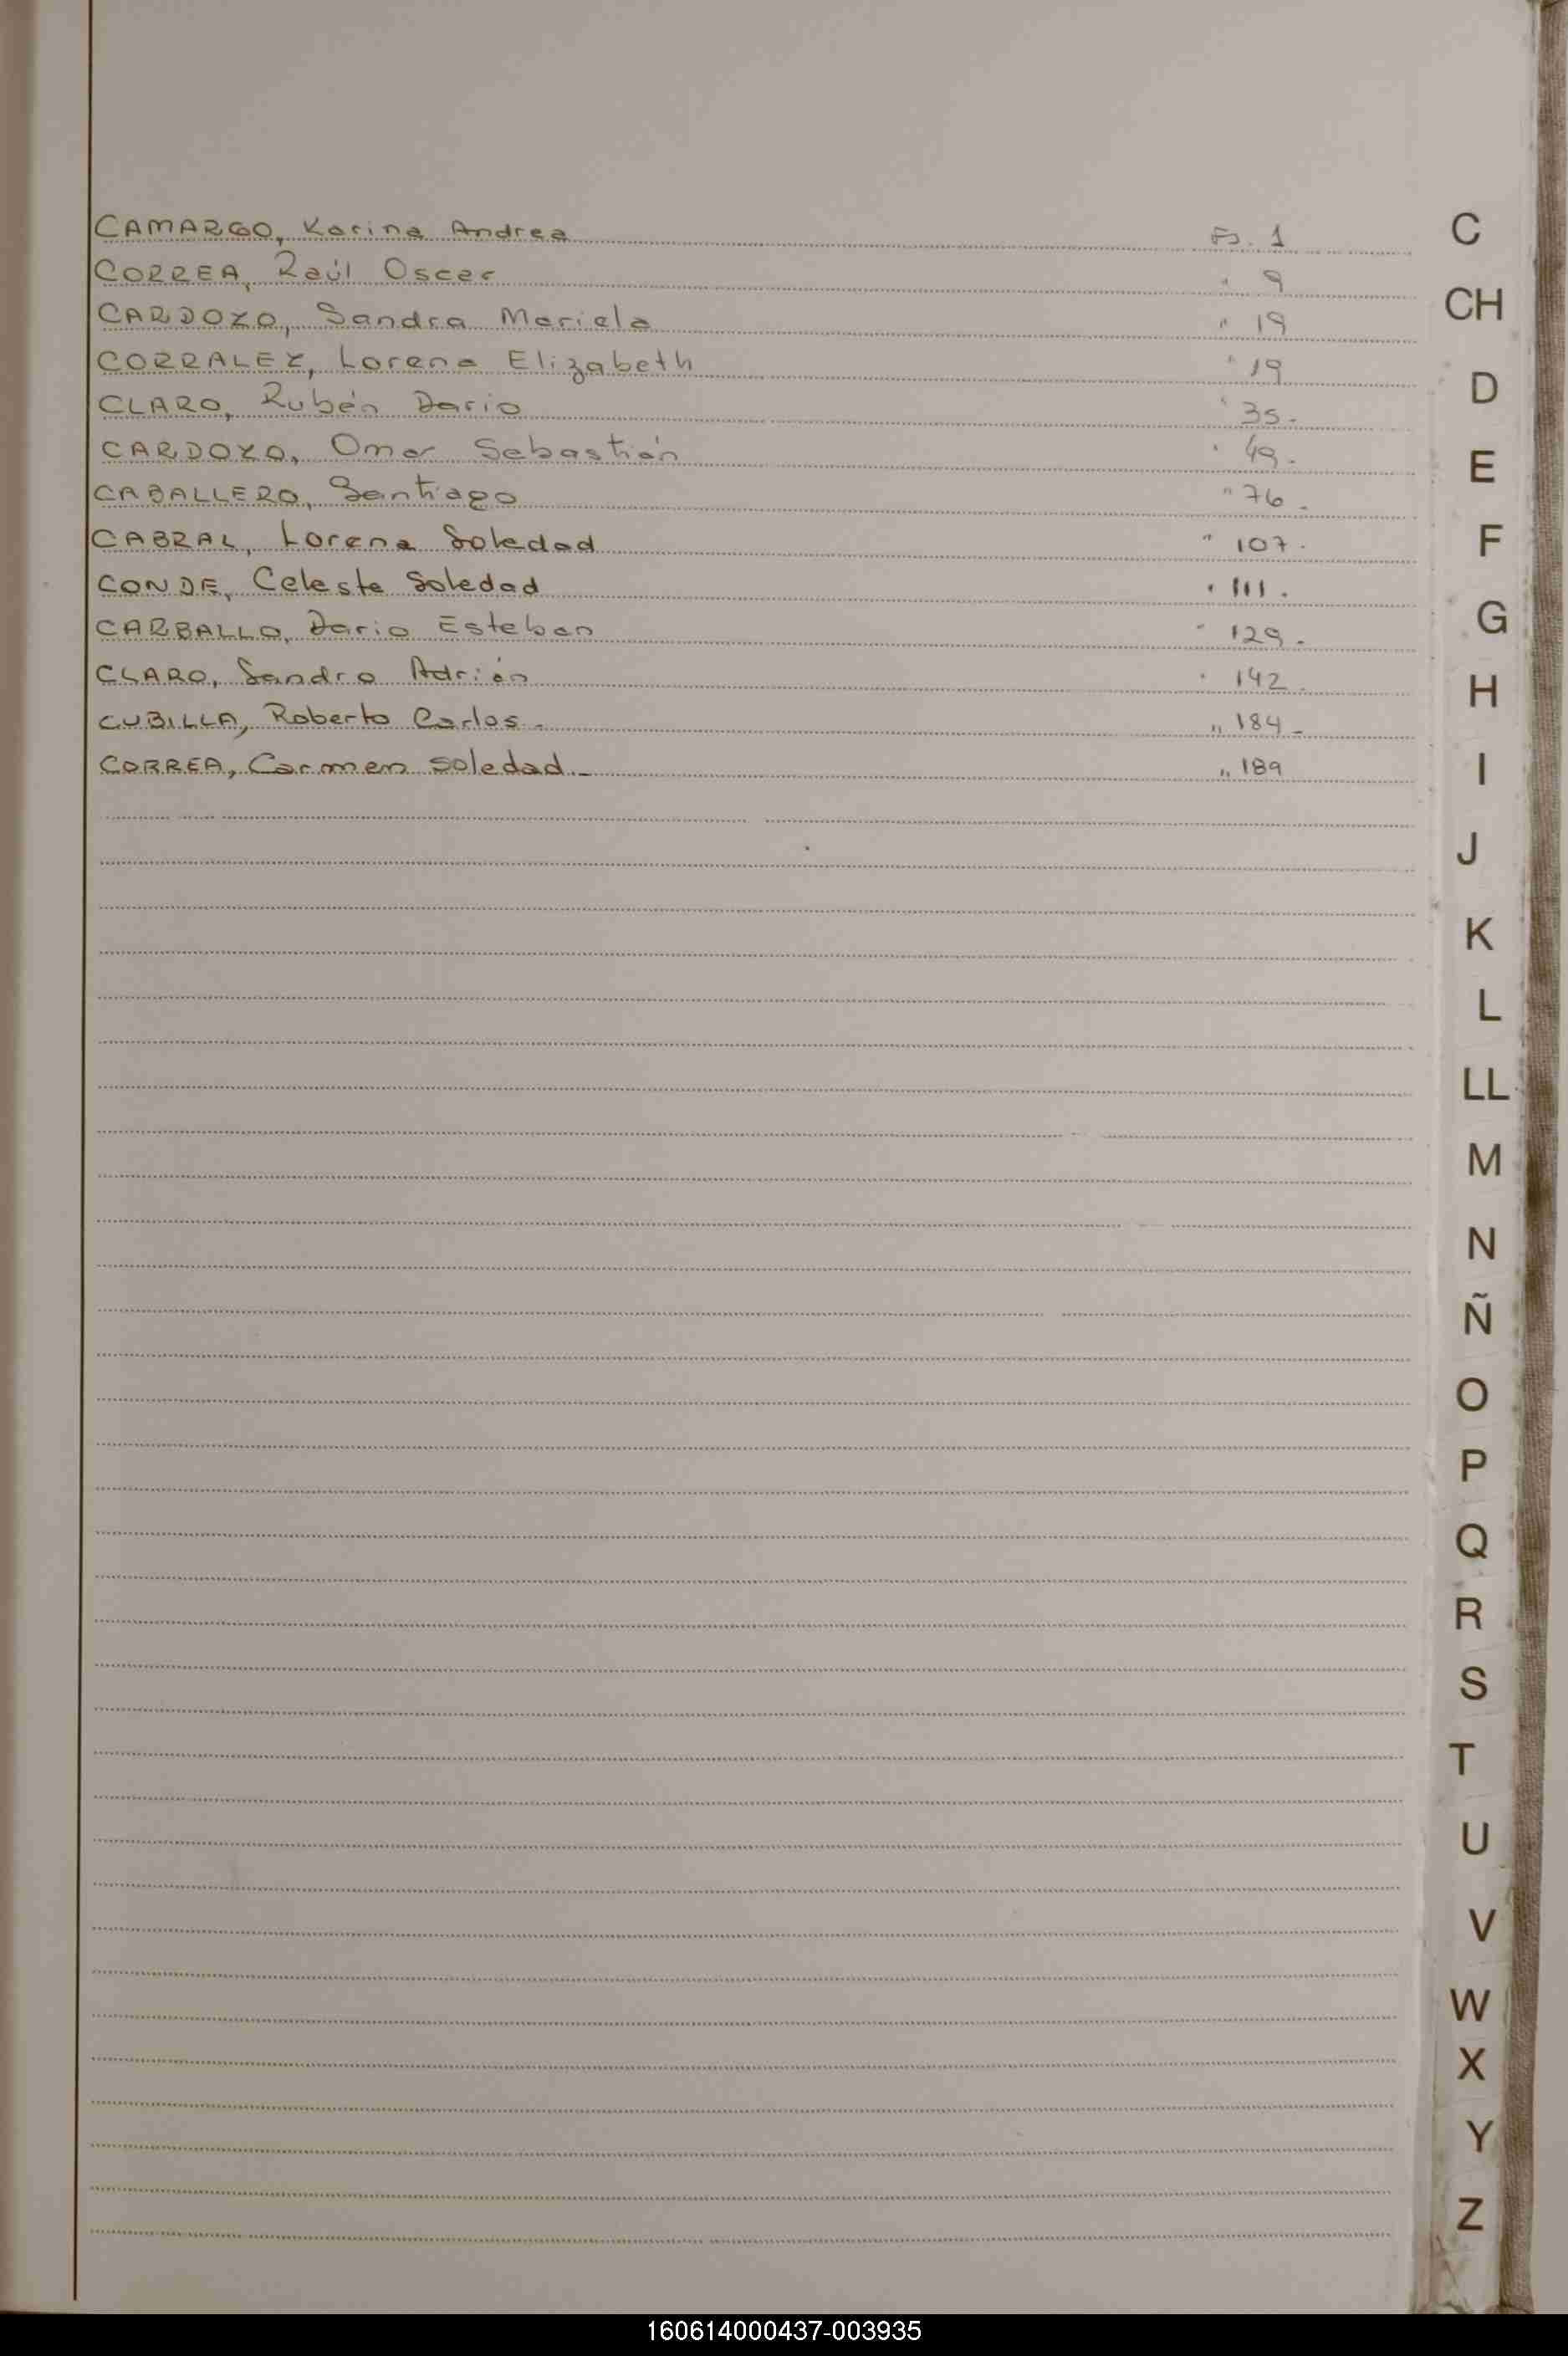 CAMARGO, Karina Andrea Fs. 1
CORREA, Raúl Oscar " 9
CARDOZO, Sandra Mariela " 19
CORRALEZ, Lorena Elizabeth " 19
CLARO, Rubén Dario " 35-
CARDOZO, Omar Sebastián " 49-
CABALLERO, Santiago " 76-
CABRAL, Lorena Soledad " 107-
CONDE, Celeste Soledad " 111.
CARBALLO, Dario Esteban " 129-
CLARO, Sandro Adrián " 142-
CUBILLA, Roberto Carlos- " 184-
CORREA, Carmen Soledad- " 189
C
CH
D
E
F
G
H
I
J
K
L
LL
M
N
Ñ
O
P
Q
R
S
T
U
V
W
X
Y
Z
160614000437-003935